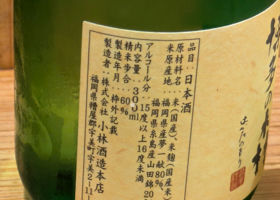 品目：日本酒
原材料名：米（国産）、米麹（国産米）
米原産地：福岡県産夢一献80%
福岡県糸島産山田錦20
アルコール分：15度以上16度未満
内容量：300ml
精米歩合：60%
製造年月：枠外記載
製造者：株式会社 小林酒造本店
福岡県糟屋郡宇美町宇美2-11